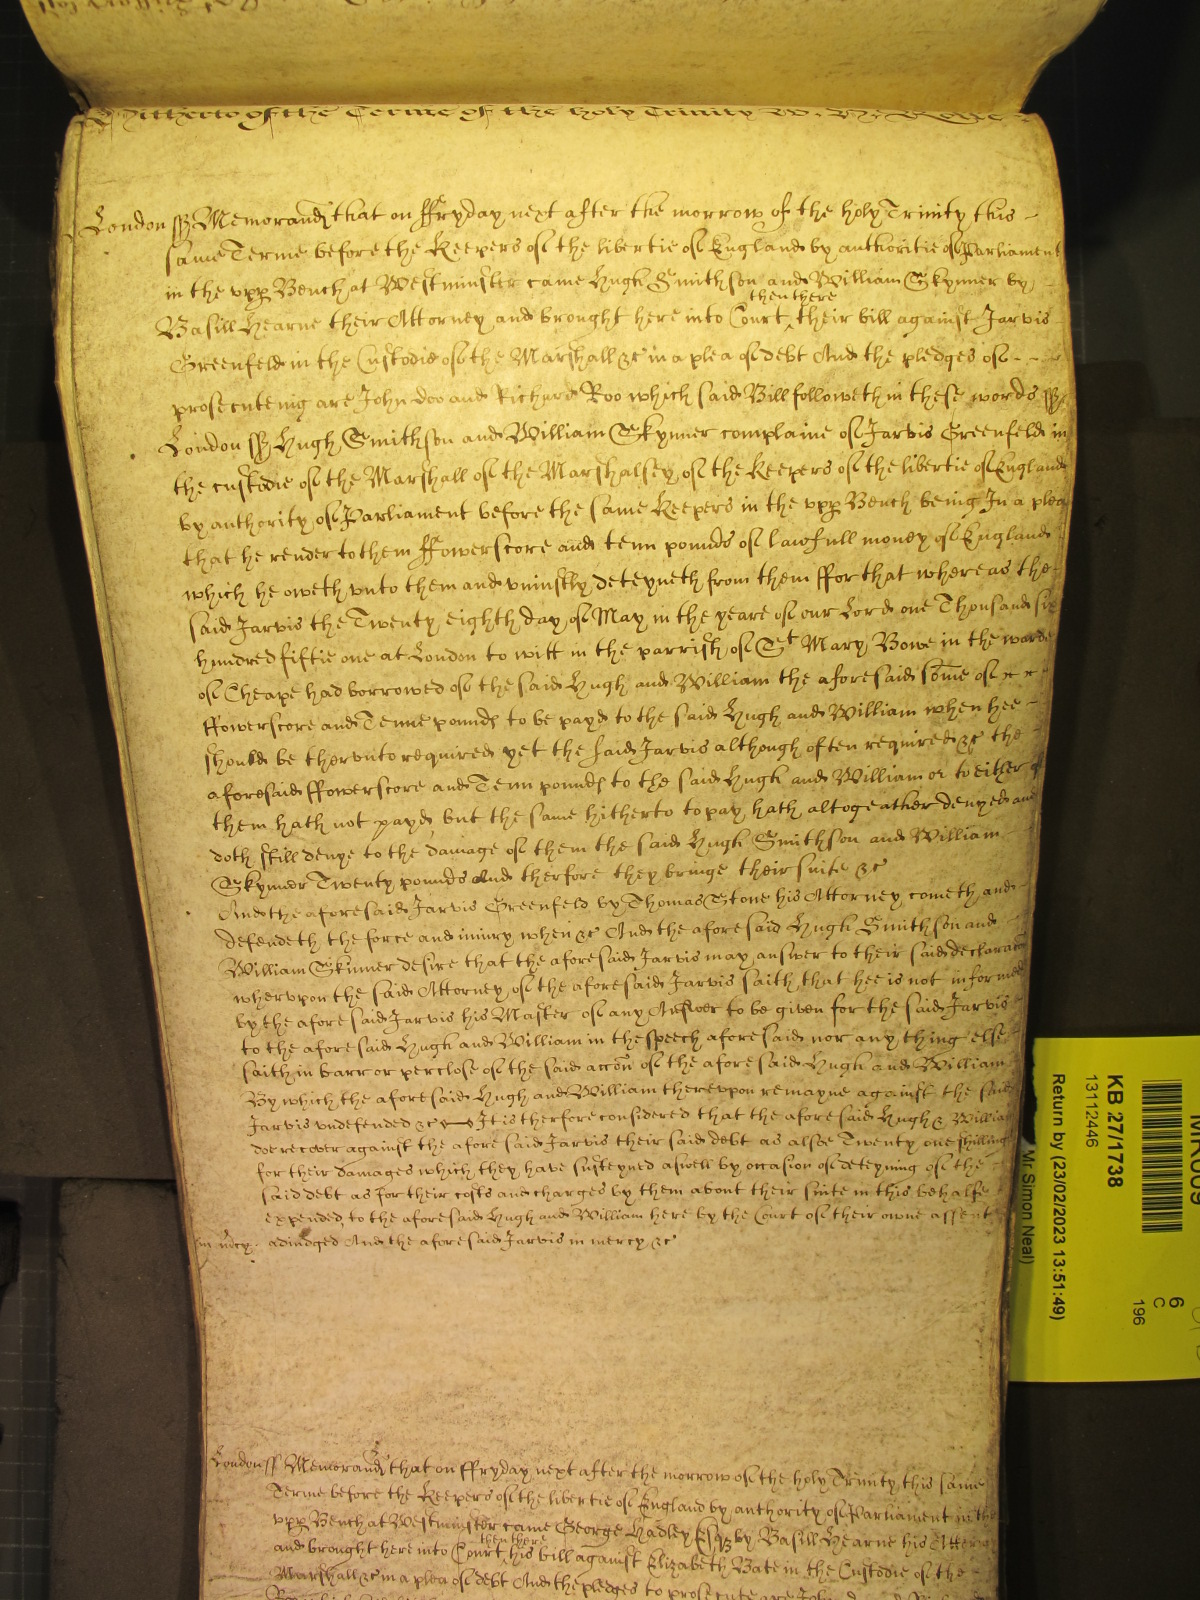 Hitherto of the Terme of the holy Trinity
London ss Memorand that on ffryday next after the morrow of the holy Trinity this
same Terme before the Keepers of the libertie of England by authoritie of Parliament
in the vpp Bench at Westminster came Hugh Smithson and William Skynner by
then there
Basill Hearne their Attorney and brought here into Court ^ their bill against Jarvis
Greenfeld in the Custodie of the Marshall &c in a plea of debt And the pledges of
prosecuteing are John doo and Richard Roo which said Bill followeth in these words ss
London ss Hugh Smithson and William Skynner complaine of Jarvis Greenfeld in
the custodie of the Marshall of the Marshalsey of the Keepers of the libertie of England
by authority of Parliament before the same Keepers in the vpp Bench being In a plea
that he render to them ffowerscore and tenn pounds of lawfull money of England
which he oweth vnto them and vniustly deteyneth from them ffor that whereas the
said Jarvis the Twenty eighth day of May in the yeare of our Lord one Thousand six
hundred fiftie one at London to witt in the parrish of St Mary Bowe in the warde
of Cheape had borrowed of the said Hugh and William the aforesaid some of
ffowerscore and Tenne pounds to be payd to the said Hugh and William when hee
should be thervnto required yet the said Jarvis although often required &c the
aforesaid ffowerscore and Tenn pounds to the said Hugh and William or to either of
them hath not payd but the same hitherto to pay hath altogeather denyed and
doth still denye to the damage of them the said Hugh Smithson and William
Skynner Twenty pounds And therfore they bringe their suite &c
And the aforesaid Jarvis Greenfeld by Thomas Stone his Attorney cometh and
defendeth the force and iniury when &c And the aforesaid Hugh Smithson and
William Skinner desire that the aforesaid Jarvis may answer to their said declaracon
whervpon the said Attorney of the aforesaid Jarvis saith that hee is not informed
by the aforesaid Jarvis his Master of any Answer to be given for the said Jarvis
to the aforesaid Hugh and William in the speech aforesaid nor any thing else
saith in barr or perclose of the said accon of the aforesaid Hugh and William
By which the aforesaid Hugh and William therevpon remayne against the said
Jarvis vndefended &c It is therfore considered that the aforesaid Hugh & William
doe recover against the aforesaid Jarvis their said debt as alsoe Twenty one shillings
for their damages which they have susteyned aswell by occasion of deteyning of the
said debt as for their costs and charges by them about their suite in this behalfe
expended to the aforesaid Hugh and William here by the Court of their owne assent
in mercy adiudged And the aforesaid Jarvis in mercy &c
London ss Memorand that on ffryday next after the morrow of the holy Trinity this same
Terme before the Keepers of the libertie of England by authority of Parliament in the
vpp Bench at Westminster came George Hadley Esq by Basill Hearne his Attorney
then there
and brought here into Court ^ his bill against Elizabeth Bate in the Custodie of the
Marshall &c in a plea of debt And the pledges to prosecute are John
KB 27/1738
13112446
Return by (23/02/2023 13:51:49)
Mr Simon Neal)
6
C
196